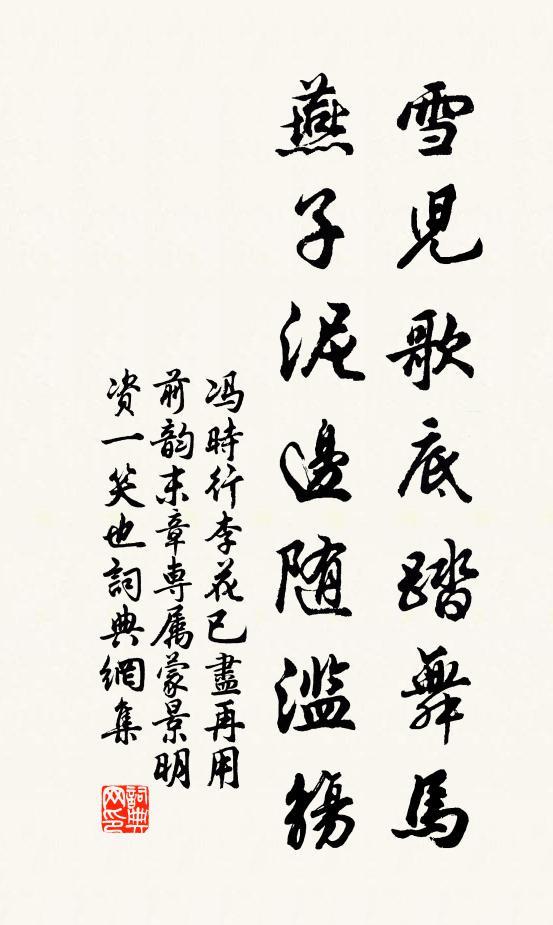 雪児歌底踏舞馬
燕子泥邊随濫觴
冯時行李花已盡再用
前韵末章専属蒙景明
资一笑也詞典網集
詞典网印